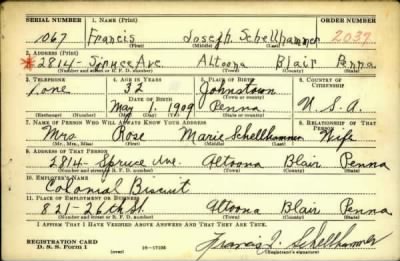 SERIAL NUMBER 1. NAME (Print) ORDER NUMBER
1067 Francis Joseph Schellhammer 2037
(First) (Middle) (Last)
2. ADDRESS (Print)
2814- Spruce Ave Altoona Blair Penna
(Number and street or R. F. D. number) (Town) (County) (State)
3. TELEPHONE 4. AGE IN YEARS 5. PLACE OF BIRTH 6. COUNTRY OF CITIZENSHIP
none 32 Johnstown
DATE OF BIRTH (Town or county)
May 1, 1909 Penna. U.S.A.
(Mo.) (Day) (Yr.) (State or country)
7. NAME OF PERSON WHO WILL ALWAYS KNOW YOUR ADDRESS 8. RELATIONSHIP OF THAT PERSON
Mrs Rose Marie Schellhammer Wife
(Mr., Mrs., Miss) (First) (Middle) (Last)
9. ADDRESS OF THAT PERSON
2814- Spruce Ave. Altoona Blair Penna
(Number and street or R. F. D. number) (Town) (County) (State)
10. EMPLOYER'S NAME
Colonial Biscuit
11. PLACE OF EMPLOYMENT OR BUSINESS
821-26th St. Altoona Blair Penna
(Number and street or R. F. D. number) (Town) (County) (State)
I AFFIRM THAT I HAVE VERIFIED ABOVE ANSWERS AND THAT THEY ARE TRUE.
REGISTRATION CARD
D. S. S. Form 1 (over) 16-17105 Francis J. Schellhammer
(Registrant's signature)